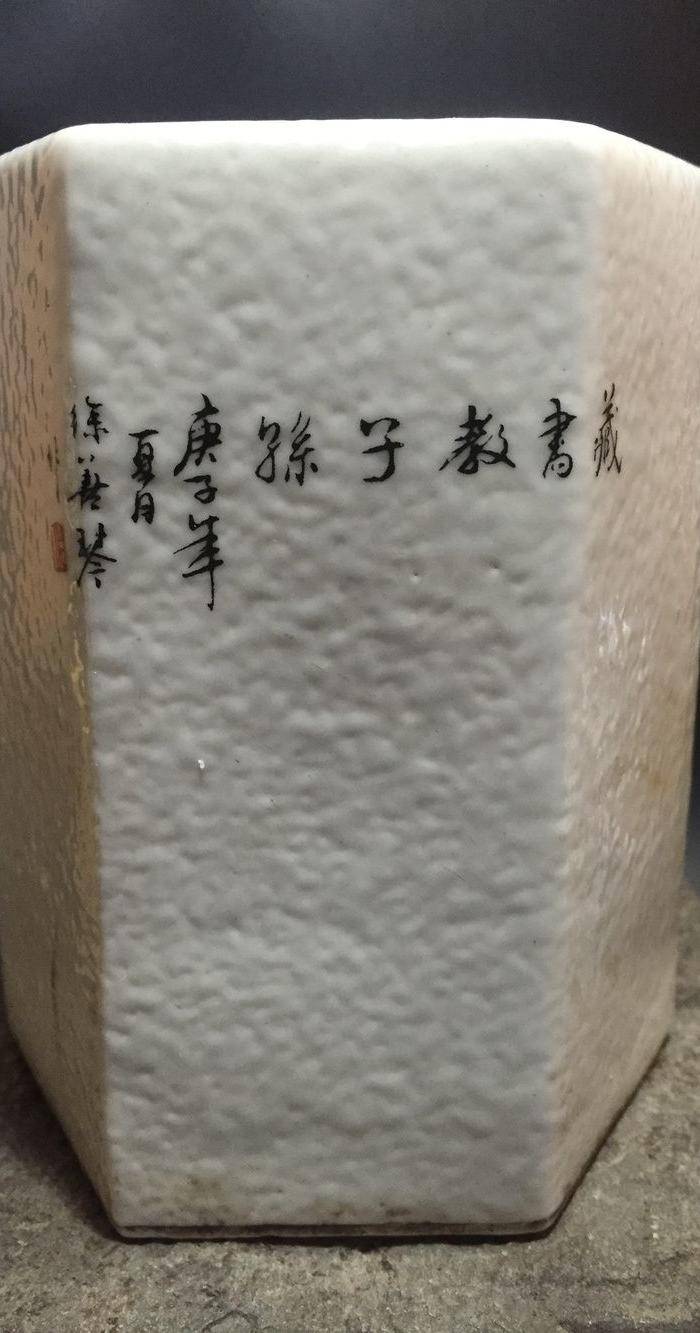 藏書教子孫
庚子年
夏月
徐善琴